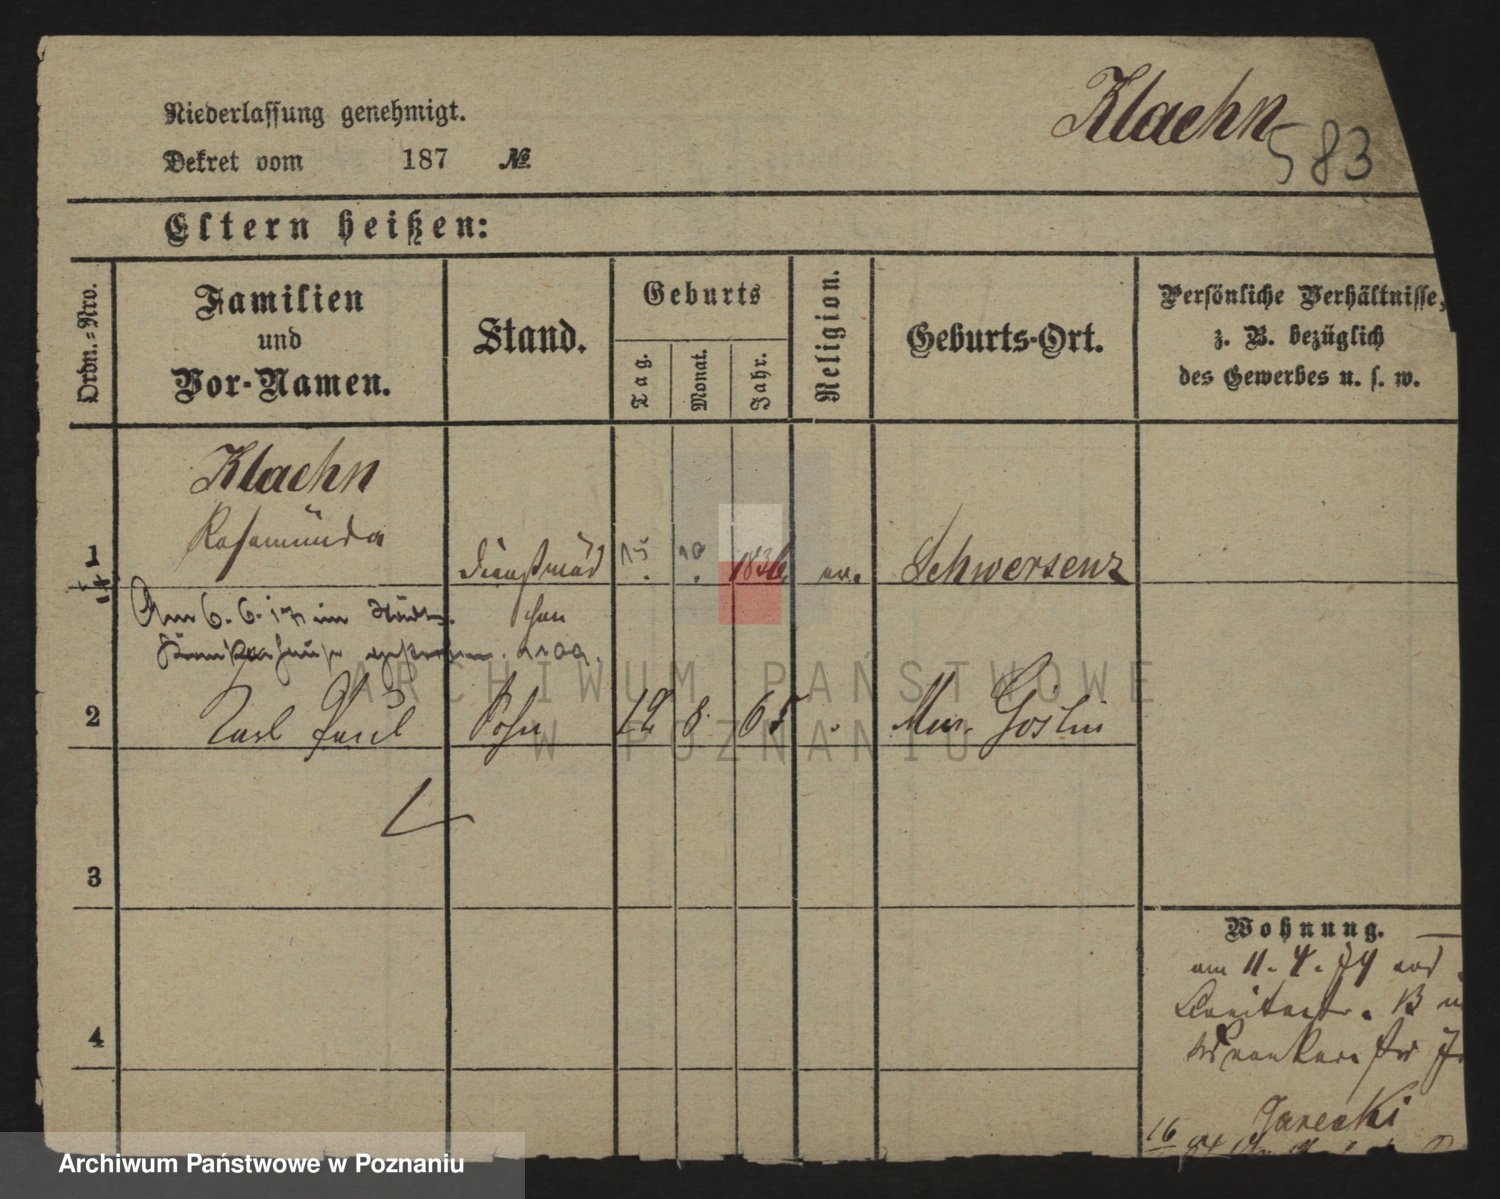 Niederlassung genehmigt.
Klaehn
583
Dekret vom 187 №.
Eltern heißen:
Ordn.-Nro.
Familien
und
Vor-Namen.
Stand.
Geburts
Tag.
Monat.
Jahr.
Religion.
Geburts-Ort.
Persönliche Verhältnisse,
z. B. bezüglich
des Gewerbes u. s. w.
Klaehn
1 Rosamünda Dienstmäd 15. 10. 1836 ev. Schwersenz
chen
Am 6. 6. im Städt.
gestorben.
2 Karl Paul Sohn 12 8. 65 Mur. Goslin
3
Wohnung.
am 11. 4. 74
Breitestr.
4
Jarecki
16
ARCHIWUM PAŃSTWOWE
W POZNANIU
Archiwum Państwowe w Poznaniu